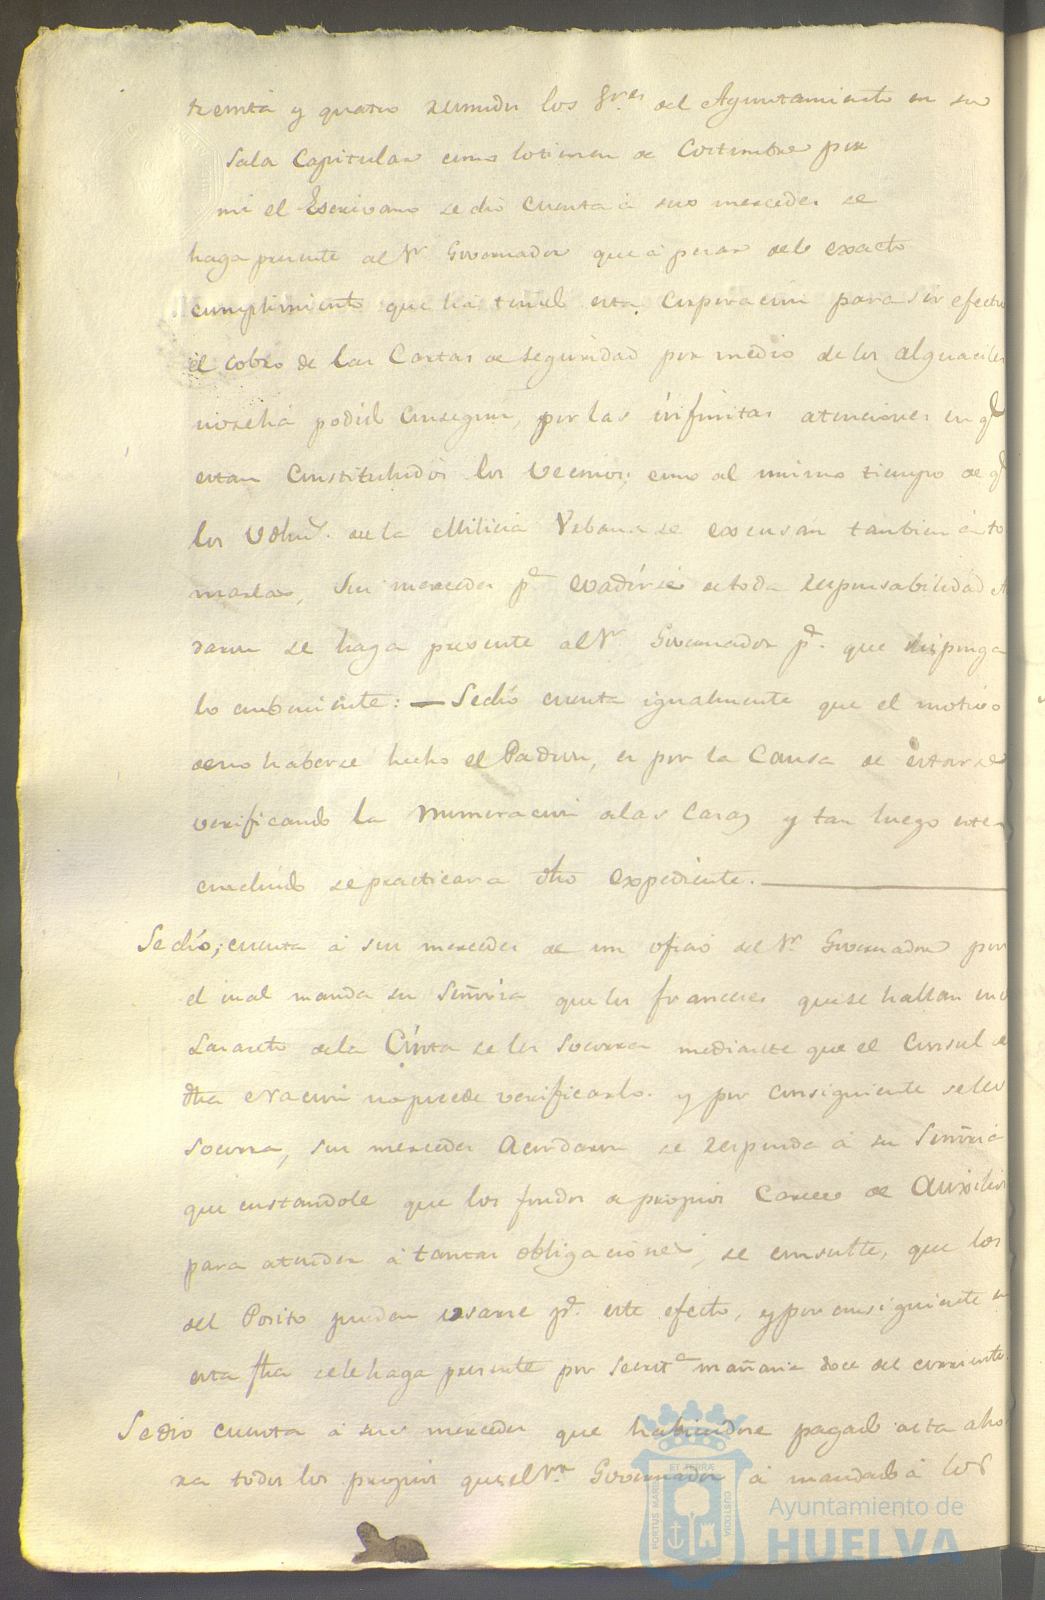 treinta y quatro reunidos los Sres. del Ayuntamiento en su
Sala Capitular como lotienen de Costumbre por
mi el Escrivano se dio cuenta a sus mercedes se
haga presente al Sr Governador que a pesar delo exacto
cumplimiento que ha tenido esta Corporacion para ser efectivo
el cobro de las Cartas de seguridad por medio de los alguaciles
noseha podido Conseguir, por las infinitas atenciones en qe
estan Constituhidos los Vecinos; como al mismo tiempo de qe
los Volunts. de la Milicia Vrbana se excusan tanbien a to
marlas, Sus mercedes pa. evadirse detoda responsabilidad a
daron se haga presente al Sr Governador pa. que disponga
lo conbeniente: — Sedio cuenta igualmente que el motivo
deno haberse hecho el Padron, es por la Causa de estarse
verificando la Numeracion delas Casas y tan luego este
concluido sepracticara dho expediente.
Se dio; cuenta á sus mercedes de un oficio del Sr. Governador por
el cual manda su Señoria que los franceses quese hallan en el
Lazareto dela Cinta se les Socorra mediante que el Consul de
dha nacion nopuede verificarlo. y por consiguiente seles
Socorra, sus mercedes Acordaron se responda á su Señoria
que constandole que los fondos de propios Carece de Auxilios
para atender á tantas obligaciones, se consulte, que los
del Posito puedan usarse pa. este efecto, y por consiguiente en
esta fha selehaga presente por Secreta mañana doce del corriente.
Se dio cuenta á sus mercedes que habiendose pagado asta aho
ra todos los propios quel Sr. Governador á mandado á los
PORTUS MARIS ET TERRÆ CUSTODIA
Ayuntamiento de
HUELVA